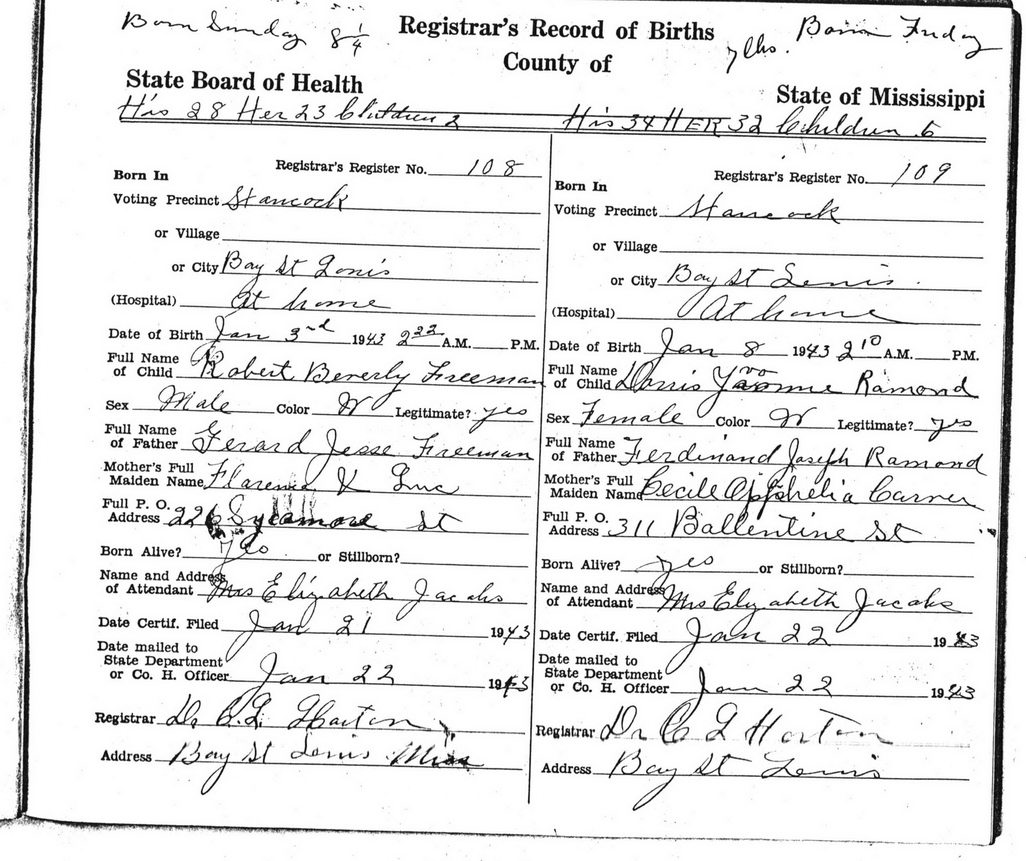 Born Sunday 8 1/4
Registrar's Record of Births
7 lbs. Born Friday
County of
State Board of Health
State of Mississippi
His 28 Her 23 Children 2
His 34 HER 32 Children 5
Registrar's Register No. 108
Born In
Voting Precinct Hancock
or Village
or City Bay St Louis
(Hospital) At home
Date of Birth Jan 3rd 1943 2 22 A.M. P.M.
Full Name
of Child Robert Beverly Freeman
Sex Male Color W Legitimate? yes
Full Name
of Father Gerard Jesse Freeman
Mother's Full
Maiden Name Florence V Luc
Full P. O.
Address 226 Sycamore St
Born Alive? yes or Stillborn?
Name and Address
of Attendant Mrs Elizabeth Jacobs
Date Certif. Filed Jan 21 1943
Date mailed to
State Department
or Co. H. Officer Jan 22 1943
Registrar Dr C. L. Horton
Address Bay St Louis Miss
Registrar's Register No. 109
Born In
Voting Precinct Hancock
or Village
or City Bay St Louis
(Hospital) At home
Date of Birth Jan 8 1943 2 10 A.M. P.M.
Full Name
of Child Dorris Yvonne Ramond
Sex Female Color W Legitimate? yes
Full Name
of Father Ferdinand Joseph Ramond
Mother's Full
Maiden Name Cecile Carver
Full P. O.
Address 311 Ballentine St
Born Alive? yes or Stillborn?
Name and Address
of Attendant Mrs Elyzabeth Jacobs
Date Certif. Filed Jan 22 1943
Date mailed to
State Department
or Co. H. Officer Jan 22 1943
Registrar Dr C L Horton
Address Bay St Louis